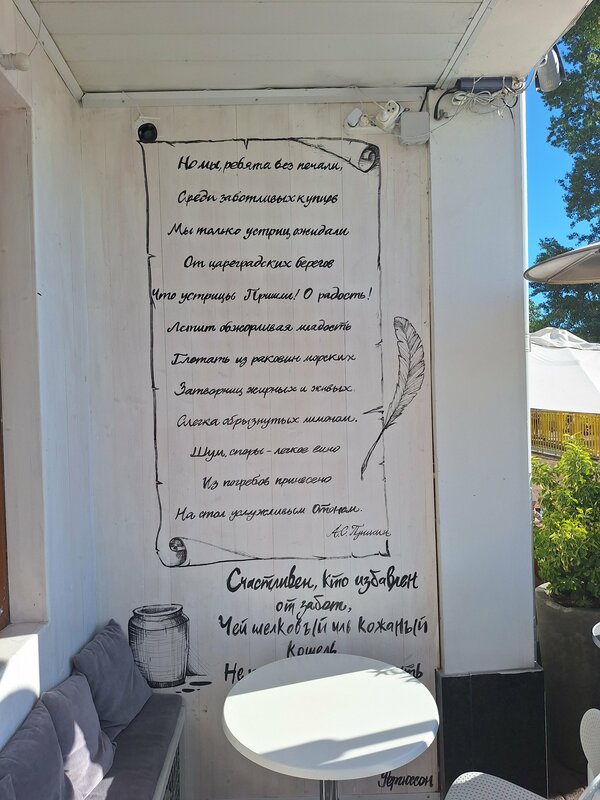 Но мы, ребята без печали,
Среди заботливых купцов
Мы только устриц ожидали
От цареградских берегов
Что устрицы Пришли! О радость!
Летит обжорливая младость
Глотать из раковин морских
Затворниц жирных и живых.
Слегка обрызнутых лимоном.
Шум, споры - легкое вино
Из погребов принесено
На стол услужливым Отоном.
А.С. Пушкин
Счастливен, кто избавлен
от забот,
Чей шелковый иль кожаный
кошель
Не